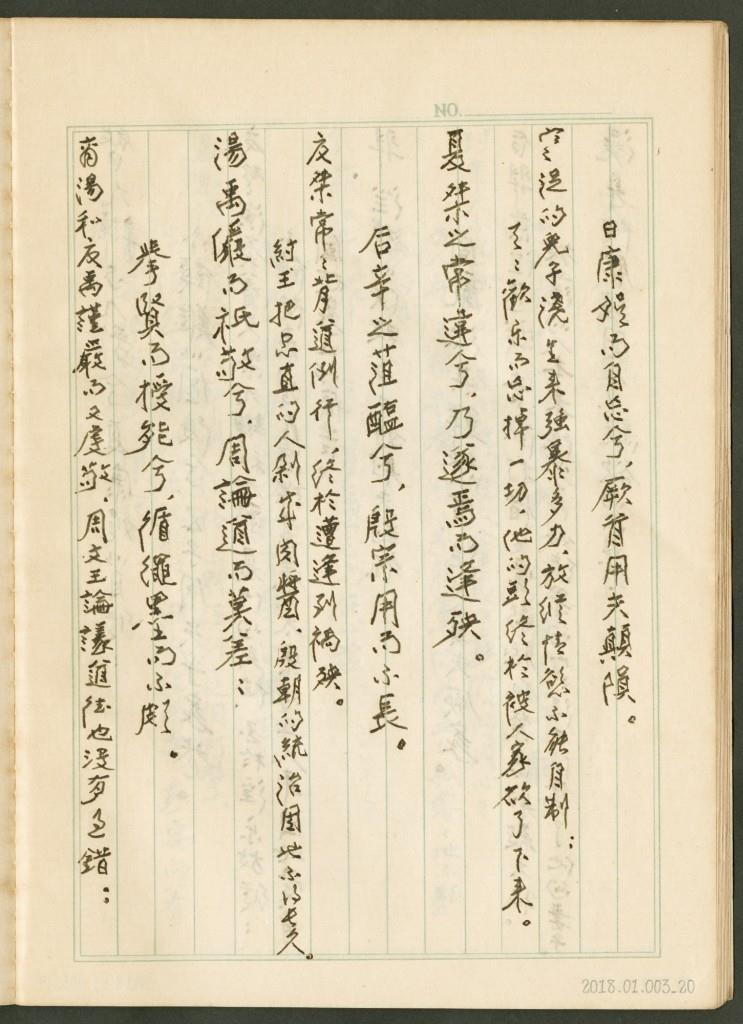 NO.
日康娛而自忘兮，厥首用夫顛隕。
寒浞的兒子澆生來強暴多力，放縱情慾不能自制；
天天歡乐而忘掉一切，他的頭終於被人家砍了下来。
夏桀之常違兮，乃遂焉而逢殃。
后辛之菹醢兮，殷宗用而不長。
夏桀常常背道倒行，終於遭逢到禍殃。
紂王把忠直的人剁成肉醬，殷朝的統治因此不得長久。
湯禹儼而祇敬兮，周論道而莫差；
舉賢而授能兮，循繩墨而不頗。
商湯和夏禹謹嚴而又虔敬，周文王論議道德也沒有過錯；
2018.01.003_20